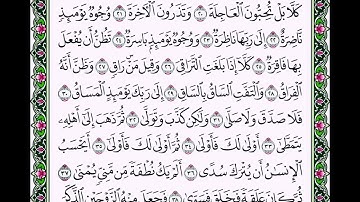 كَلَّا بَلْ تُحِبُّونَ الْعَاجِلَةَ ٢٠ وَتَذَرُونَ الْآخِرَةَ ٢١ وُجُوهٌ يَوْمَئِذٍ
نَّاضِرَةٌ ٢٢ إِلَىٰ رَبِّهَا نَاظِرَةٌ ٢٣ وَوُجُوهٌ يَوْمَئِذٍ بَاسِرَةٌ ٢٤ تَظُنُّ أَن يُفْعَلَ
بِهَا فَاقِرَةٌ ٢٥ كَلَّا إِذَا بَلَغَتِ التَّرَاقِيَ ٢٦ وَقِيلَ مَنْ رَاقٍ ٢٧ وَظَنَّ أَنَّهُ
الْفِرَاقُ ٢٨ وَالْتَفَّتِ السَّاقُ بِالسَّاقِ ٢٩ إِلَىٰ رَبِّكَ يَوْمَئِذٍ الْمَسَاقُ ٣٠
فَلَا صَدَّقَ وَلَا صَلَّىٰ ٣١ وَلَٰكِن كَذَّبَ وَتَوَلَّىٰ ٣٢ ثُمَّ ذَهَبَ إِلَىٰ أَهْلِهِ
يَتَمَطَّىٰ ٣٣ أَوْلَىٰ لَكَ فَأَوْلَىٰ ٣٤ ثُمَّ أَوْلَىٰ لَكَ فَأَوْلَىٰ ٣٥ أَيَحْسَبُ
الْإِنسَانُ أَن يُتْرَكَ سُدًى ٣٦ أَلَمْ يَكُ نُطْفَةً مِّن مَّنِيٍّ يُمْنَىٰ ٣٧
ثُمَّ كَانَ عَلَقَةً فَخَلَقَ فَسَوَّىٰ ٣٨ فَجَعَلَ مِنْهُ الزَّوْجَيْنِ الذَّكَرَ